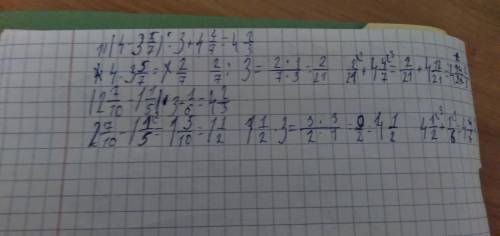 1) (4 - 3 5/7) : 3 + 4 4/7 = 4 2/3
4 - 3 5/7 = 2/7   2/7 : 3 = 2·1/7·3 = 2/21   2/21 + 4 4/7 = 2/21 + 4 12/21 =
(2 7/10 - 1 1/5) · 3 + 1/6 = 4 2/3
2 7/10 - 1 1/5 = 1 5/10 = 1 1/2   1 1/2 · 3 = 3 · 3 / = 9/2 = 4 1/2   4 1/2 + 1/6 =